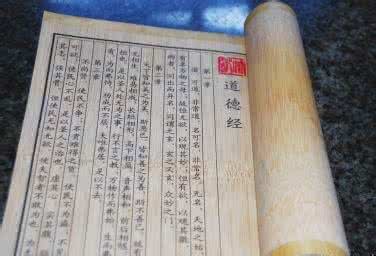 道德经
第一章
道可道,非常道,名可名,非常名,无名,天地之始
有名万物之母,故恒无欲,以观其妙,恒有欲,以观其徼
两者同出而异名,同谓之玄,玄之又玄,众妙之门。
第二章
天下皆知美之为美,斯恶已,皆知善之为善,斯不善已,故有
无相生,难易相成,长短相形,高下相盈,音声相和,前后相随
恒也,是以圣人处无为之事,行不言之教,万物作而弗始,生而弗
有,为而弗恃,功成而不居,夫唯弗居,是以不去。
第三章
使民不争,不贵难得之货,使民不为盗,不见
可欲,使民不乱,是以圣人之治也,虚其心,实其腹
其志,强其骨,恒使民无知无欲,使夫智者不敢为也,为无